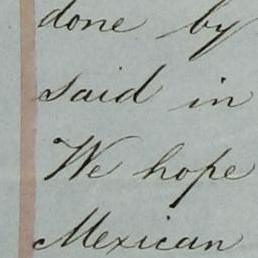 done by
said in
We hope
Mexican